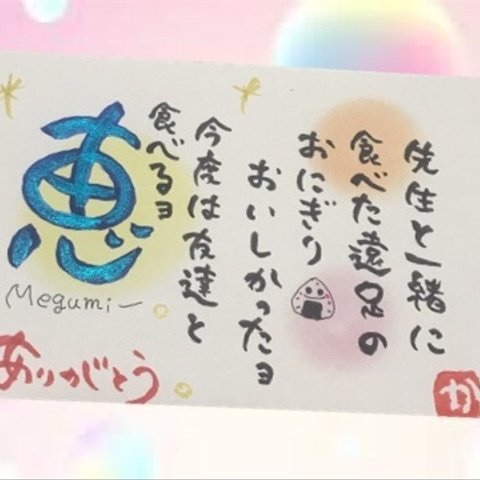 先生と一緒に
食べた遠足の
おにぎり
おいしかったヨ
今度は友達と
食べるヨ
恵
Megumi
ありがとう
か